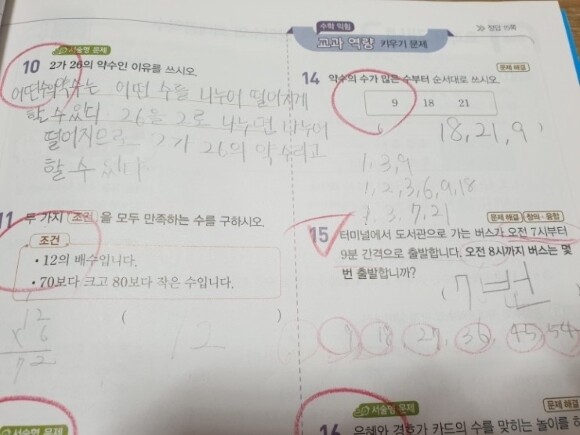 서술형 문제
10 2가 26의 약수인 이유를 쓰시오.
어떤수의 약수는 어떤 수를 나누어 떨어지게
할 수 있다. 26을 2로 나누면 나누어
떨어지므로 2가 26의 약수라고
할 수 있다.
11 두 가지 조건 을 모두 만족하는 수를 구하시오.
조건
• 12의 배수입니다.
• 70보다 크고 80보다 작은 수입니다.
12
× 6
72
( 12
수학 익힘
교과 역량 키우기 문제
정답 15쪽
문제 해결
14 약수의 수가 많은 수부터 순서대로 쓰시오.
9 18 21
18, 21, 9 )
1, 3, 9
1, 2, 3, 6, 9, 18
1, 3, 7, 21
문제 해결 창의·융합
15 터미널에서 도서관으로 가는 버스가 오전 7시부터
9분 간격으로 출발합니다. 오전 8시까지 버스는 몇
번 출발합니까?
( 7번 )
9 18 27, 36, 45 54
서술형 문제
서술형 문제
문제 해결
16 은혜와 경호가 카드의 수를 맞히는 놀이를